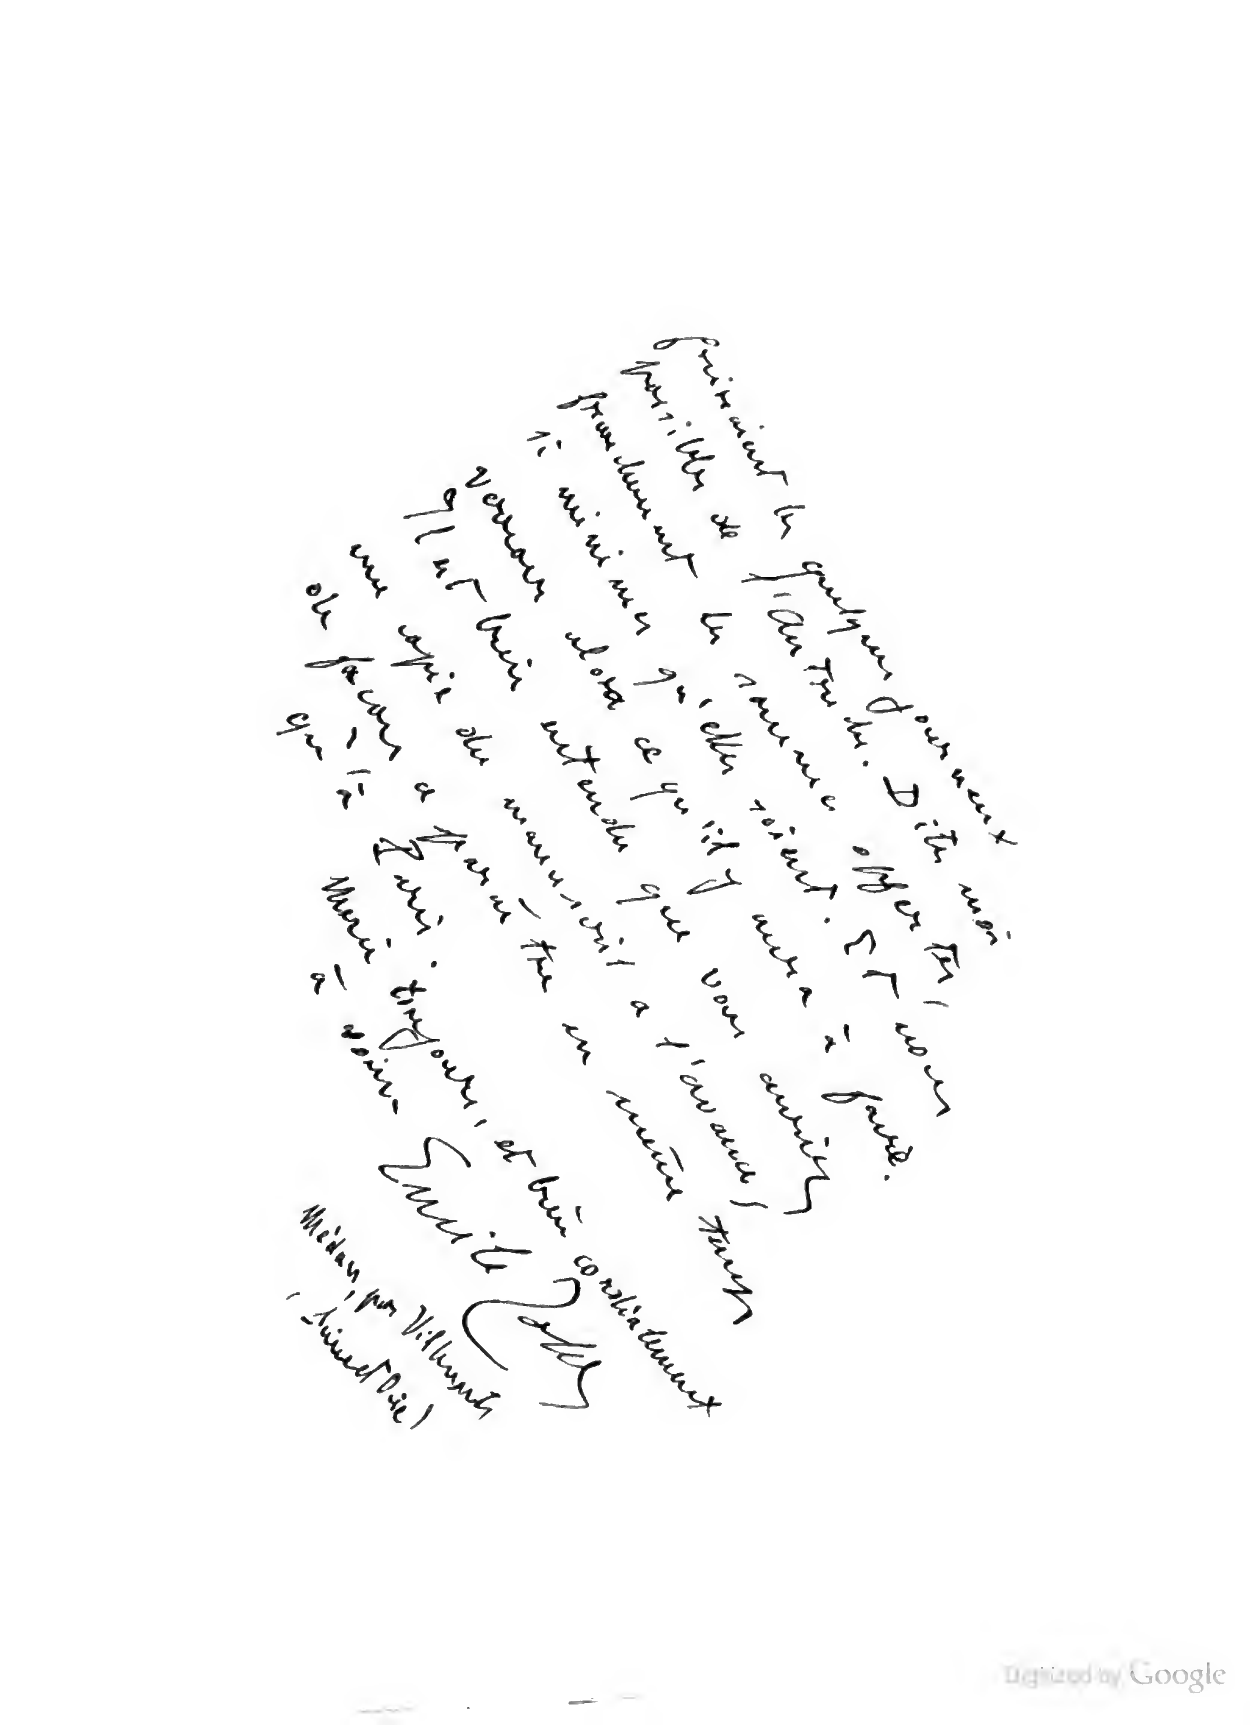 prieraient les quelques journaux
possibles de l'Autriche. Dites moi
franchement les sommes offertes,
si minimes qu'elles soient. Et nous
verrons alors ce qu'il y aura à faire.
Il est bien entendu que vous auriez
une copie du manuscrit à l'avance,
de façon à paraître en même temps
qu'à Paris.
Merci toujours, et bien cordialement
à vous.
Emile Zola
Médan, par Villennes
(Seine et Oise)
Digitized by Google